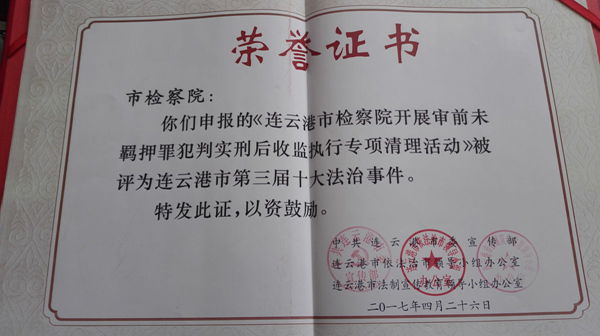 荣誉证书
市检察院：
你们申报的《连云港市检察院开展审前未
羁押罪犯判实刑后收监执行专项清理活动》被
评为连云港市第三届十大法治事件。
特发此证，以资鼓励。
中共连云港市委宣传部
连云港市依法治市领导小组办公室
连云港市法制宣传教育领导小组办公室
二〇一七年四月二十六日
办公室